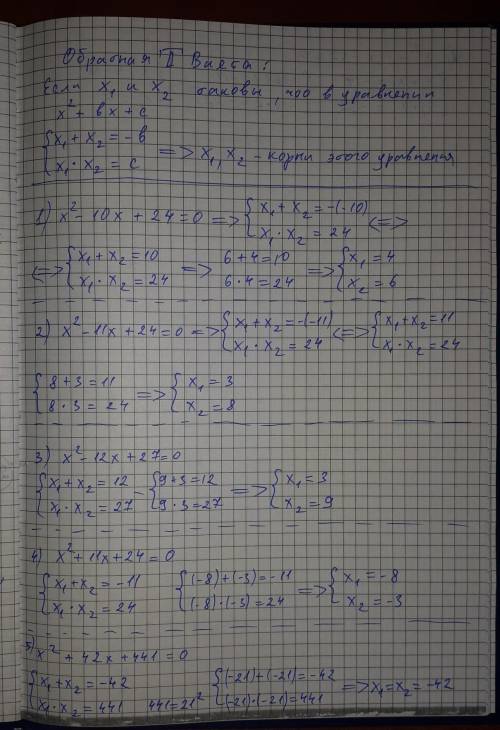 Обратная Т Виета:
Если x₁ и x₂ таковы, что в уравнении
x² + bx + c
{ x₁ + x₂ = -b
{ x₁ · x₂ = c => x₁, x₂ - корни этого уравнения
1) x² - 10x + 24 = 0 => { x₁ + x₂ = -(-10) { x₁ · x₂ = 24 <=>
<=> { x₁ + x₂ = 10 { x₁ · x₂ = 24 => 6 + 4 = 10 6 · 4 = 24 => { x₁ = 4 { x₂ = 6
2) x² - 11x + 24 = 0 => { x₁ + x₂ = -(-11) { x₁ · x₂ = 24 <=> { x₁ + x₂ = 11 { x₁ · x₂ = 24
{ 8 + 3 = 11 { 8 · 3 = 24 => { x₁ = 3 { x₂ = 8
3) x² - 12x + 27 = 0
{ x₁ + x₂ = 12 { x₁ · x₂ = 27 { 9 + 3 = 12 { 9 · 3 = 27 => { x₁ = 3 { x₂ = 9
4) x² + 11x + 24 = 0
{ x₁ + x₂ = -11 { x₁ · x₂ = 24 { (-8) + (-3) = -11 { (-8) · (-3) = 24 => { x₁ = -8 { x₂ = -3
5) x² + 42x + 441 = 0
{ x₁ + x₂ = -42 { x₁ · x₂ = 441 441 = 21² { (-21) + (-21) = -42 { (-21) · (-21) = 441 => x₁ = x₂ = -42